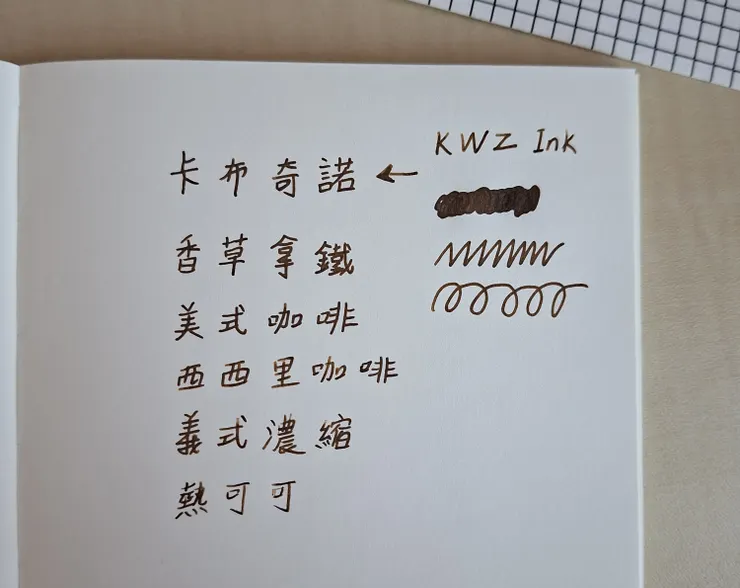 KWZ Ink
卡布奇諾 ←
香草拿鐵
美式咖啡
西西里咖啡
義式濃縮
熱可可